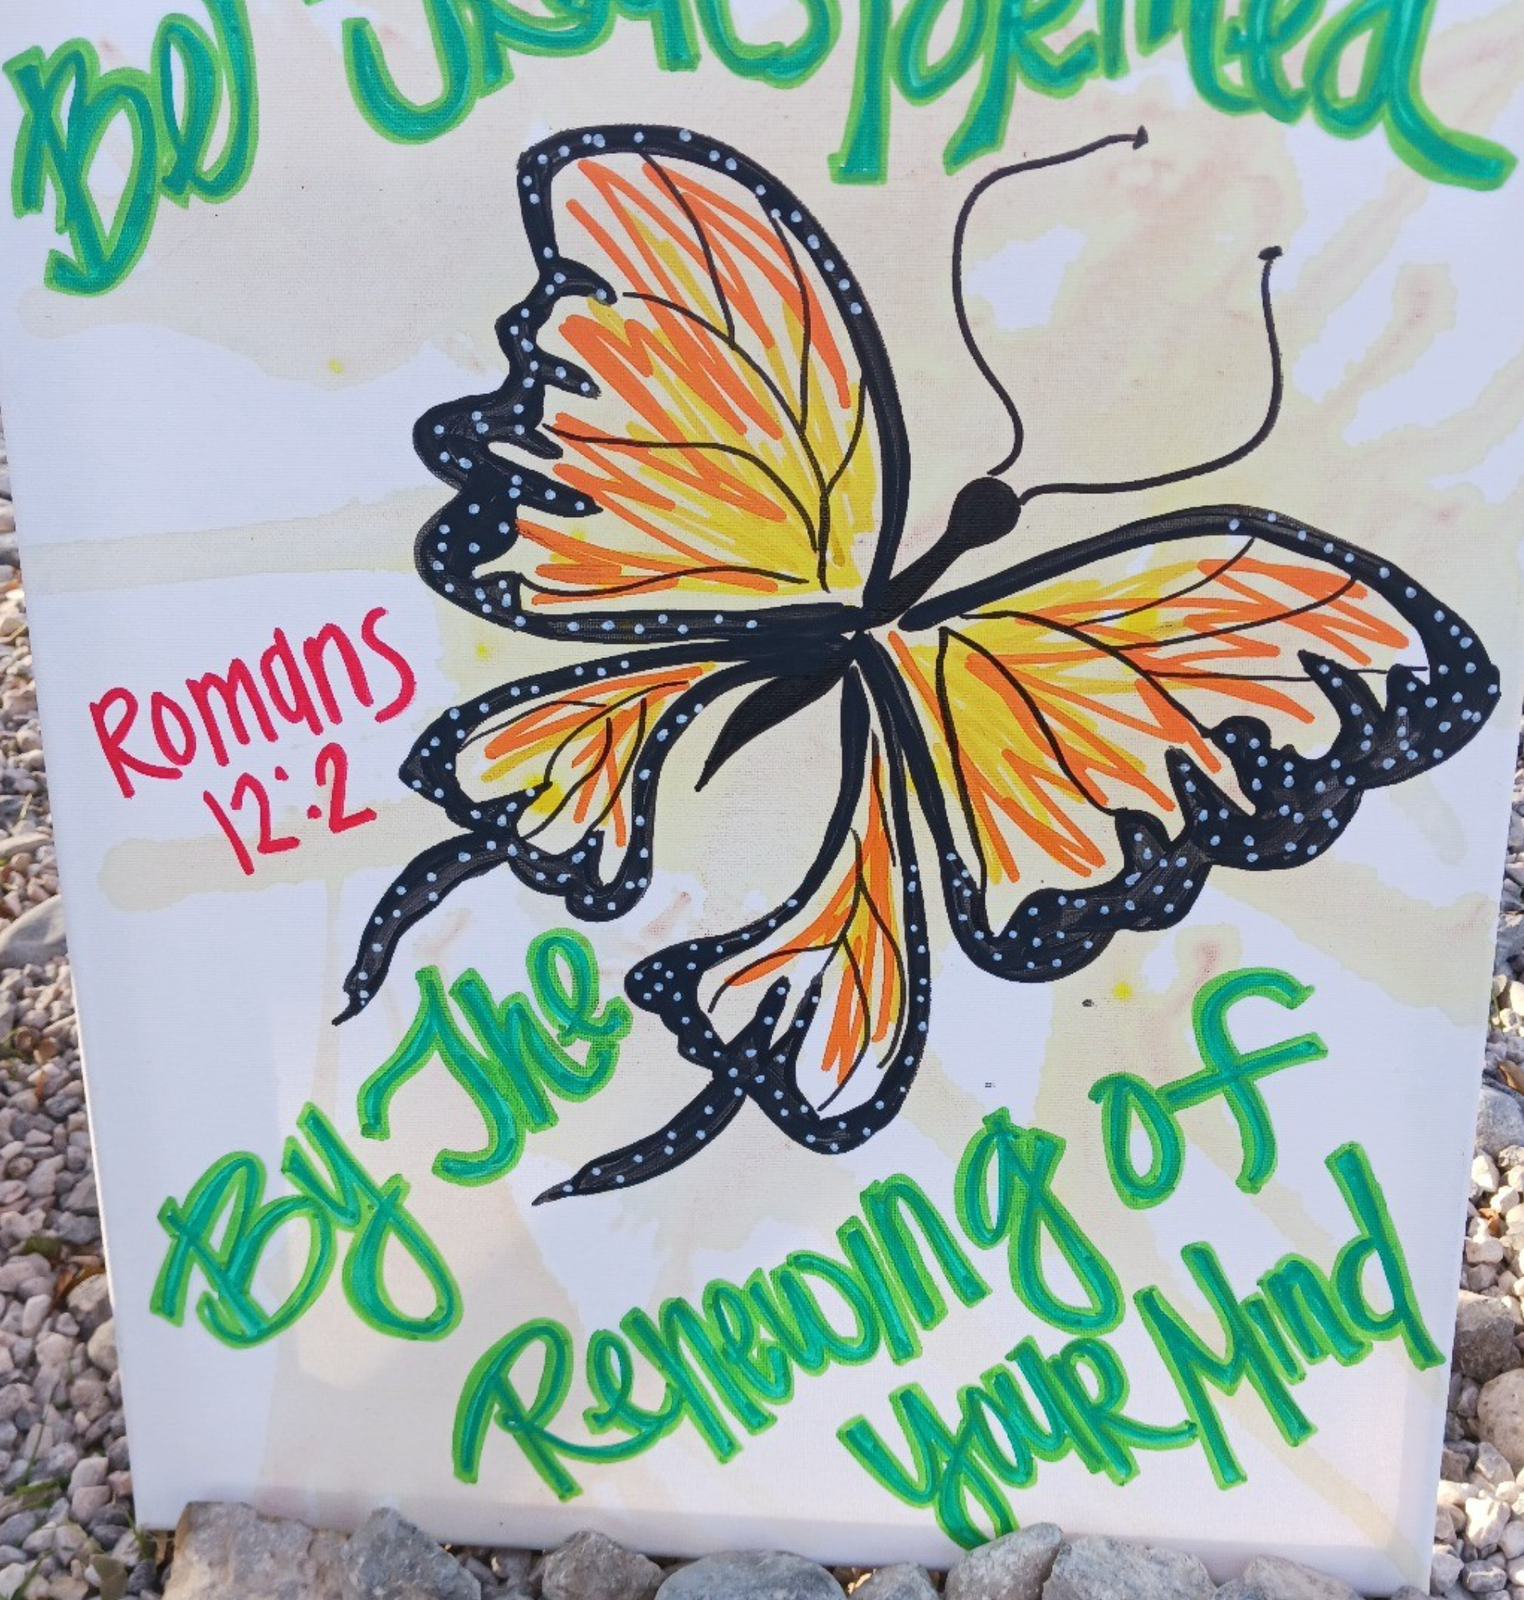 Be Transformed
Romans
12:2
By The
Renewing of
Your Mind